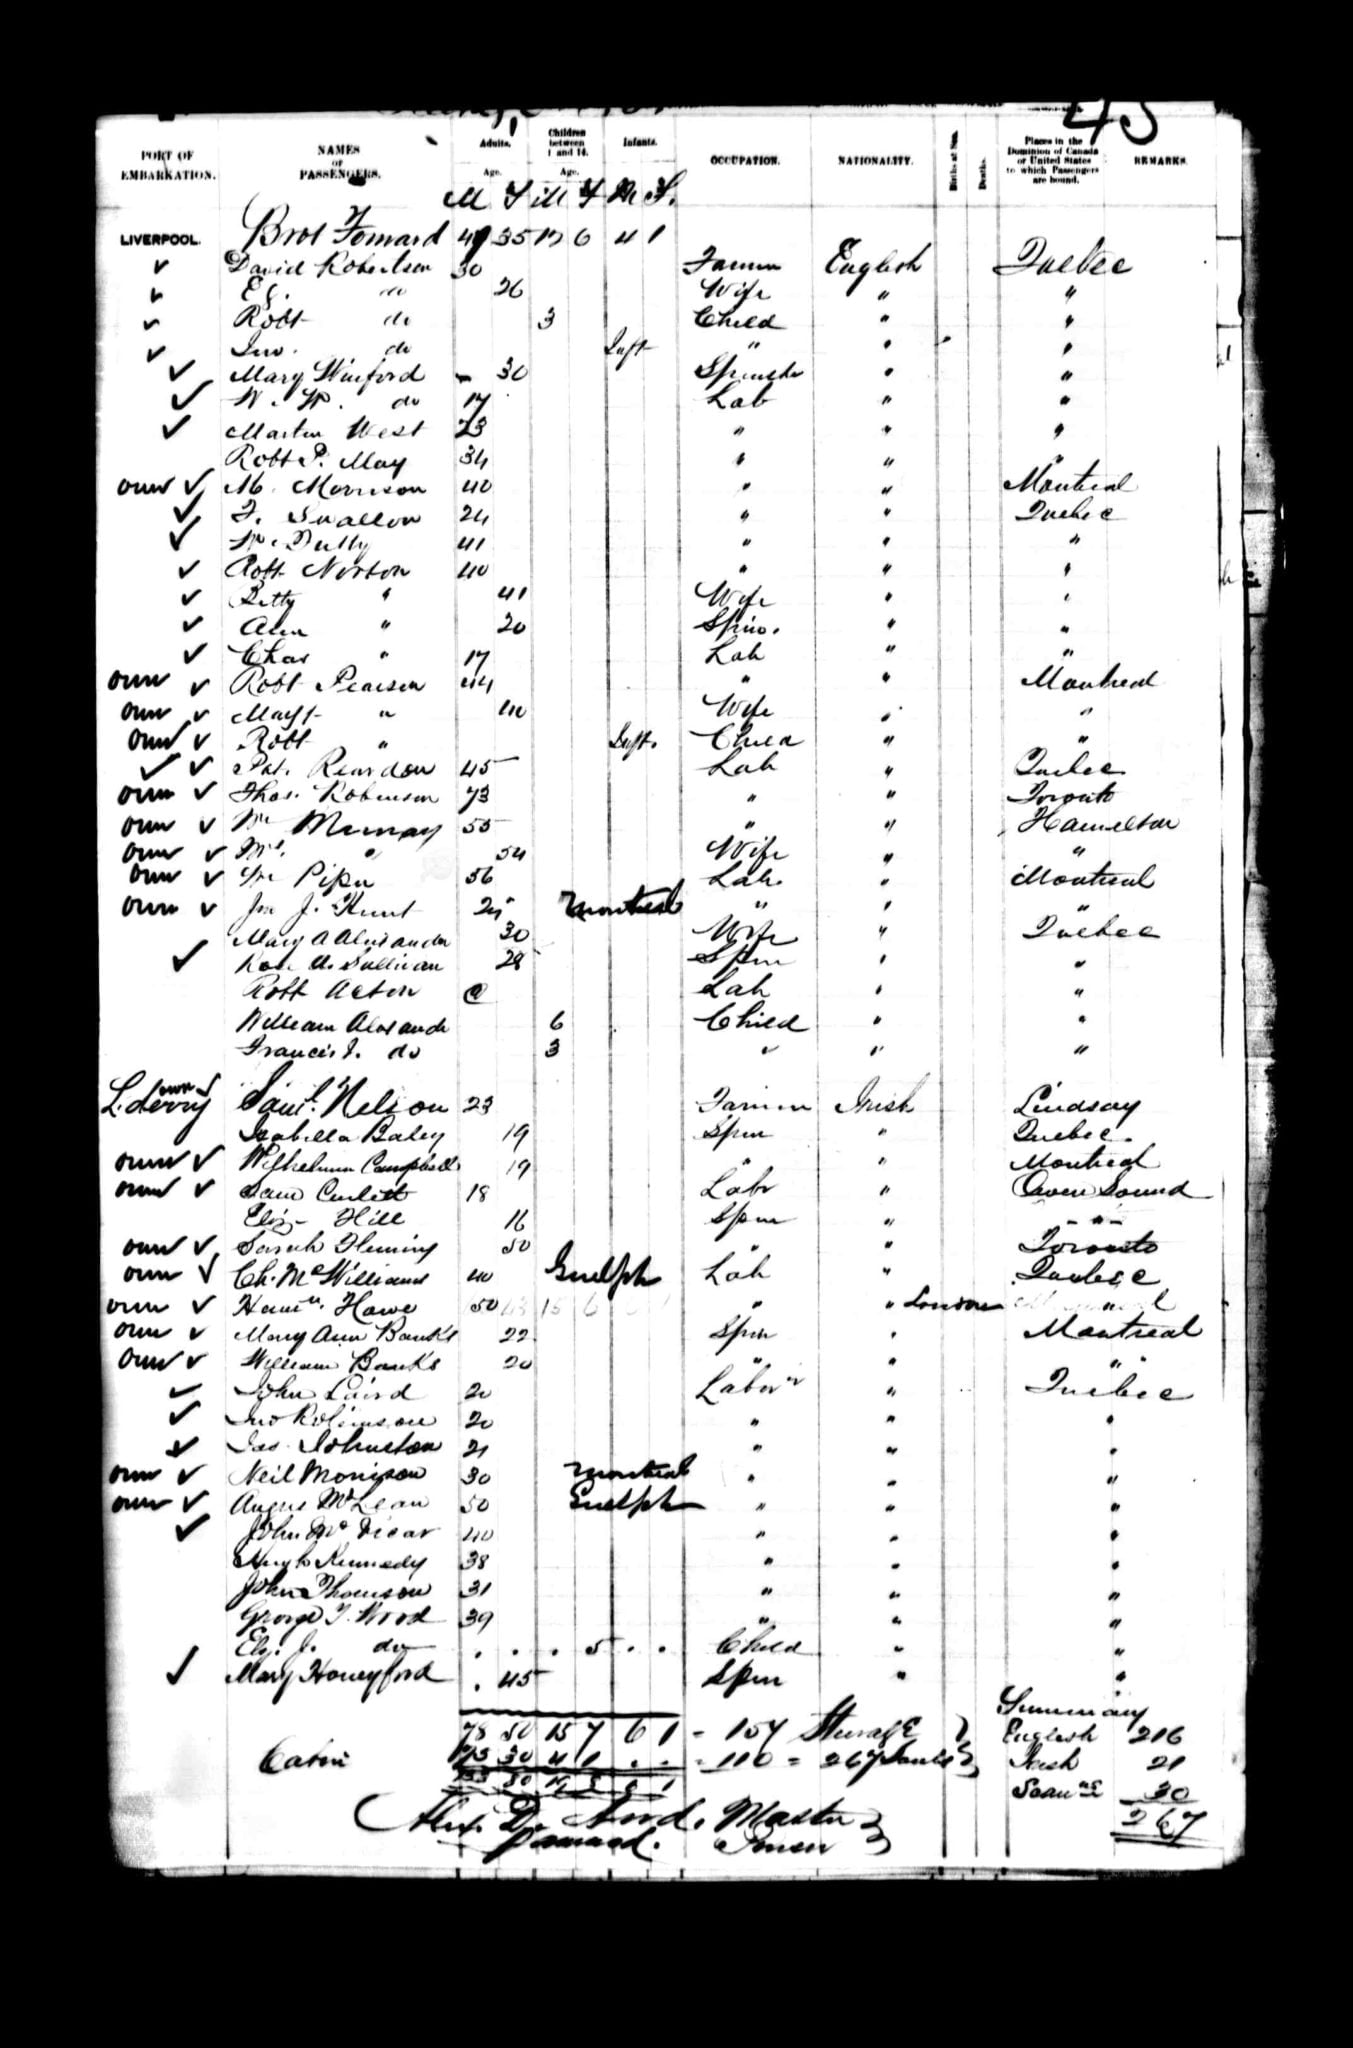 45
PORT OF EMBARKATION. NAMES OF PASSENGERS. Adults. Age. Children between 1 and 14. Age. Infants. OCCUPATION. NATIONALITY. Births at Sea. Deaths. Places in the Dominion of Canada or United States to which Passengers are bound. REMARKS.
M F M F M F.
LIVERPOOL. Brot Forward 35 6 4 1
✓ David Robertson 30 Farmer English Quebec
✓ do 26 Wife " "
✓ Robt do 3 Child " "
✓ Jno. do Inft " " "
✓ Mary Winford 30 Spinster " "
✓ W. W. do 17 Lab " "
✓ Martin West 23 " " "
Robt P. May 34 " " "
✓ M. Morrison 40 " " Montreal
✓ F. Swallow 24 " " Quebec
✓ 41 " " "
✓ Robt Norton 40 " " "
✓ Betty " 41 Wife " "
✓ " 20 Spin. " "
✓ Chas " 17 Lab " "
✓ Robt Pearson 44 " " Montreal
✓ " 40 Wife " "
✓ Robt " Inft. Child " "
✓ ✓ Pat. Reardon 45 Lab " Quebec
✓ Thos. Robinson 73 " " Toronto
✓ Wm Murray 55 " " Hamelton
✓ " 54 Wife " "
✓ Wm Piper 56 Lab. " Montreal
✓ J. Hunt Montreal " " "
Mary A Alexander 30 Wife " Quebec
✓ Sullivan 28 Spin " "
Robt Acton Lab " "
William Alexander 6 Child " "
Francis J. do 3 " " "
L.derry ✓ Saml. Nelson 23 Farmer Irish Lindsay
Isabella Baley 19 Spin " Quebec.
✓ Campbell 19 " " Montreal
✓ Sam 18 Labr " Owen Sound
Eliz. Hill 16 Spin " - " -
✓ Sarah Fleming 50 " " Toronto
✓ Ch. McWilliams 40 Guelph Lab " Quebec
✓ Howe 50 " " London
✓ Mary Ann Banks 22 Spin " Montreal
✓ William Banks 20 " " "
✓ John Laird 20 Labor " Quebec
✓ Jno Robinson 20 " " "
✓ Jas. Johnston 21 " " "
✓ Neil Morrison 30 Montreal " " "
✓ Angus McLean 50 Guelph " " "
✓ John McVicar 40 " " "
Hugh Kennedy 38 " " "
John Thomson 31 " " "
George T. Wood 39 " " "
Eliz. J. do . . . 5 . . Child " "
✓ Mary Honeyford . 45 Spin " "
Summary
78 50 15 7 6 1 - 157 Steerage English 216
Cabin 75 30 4 1 . . - 110 = 267 Souls Irish 21
30
267
Master